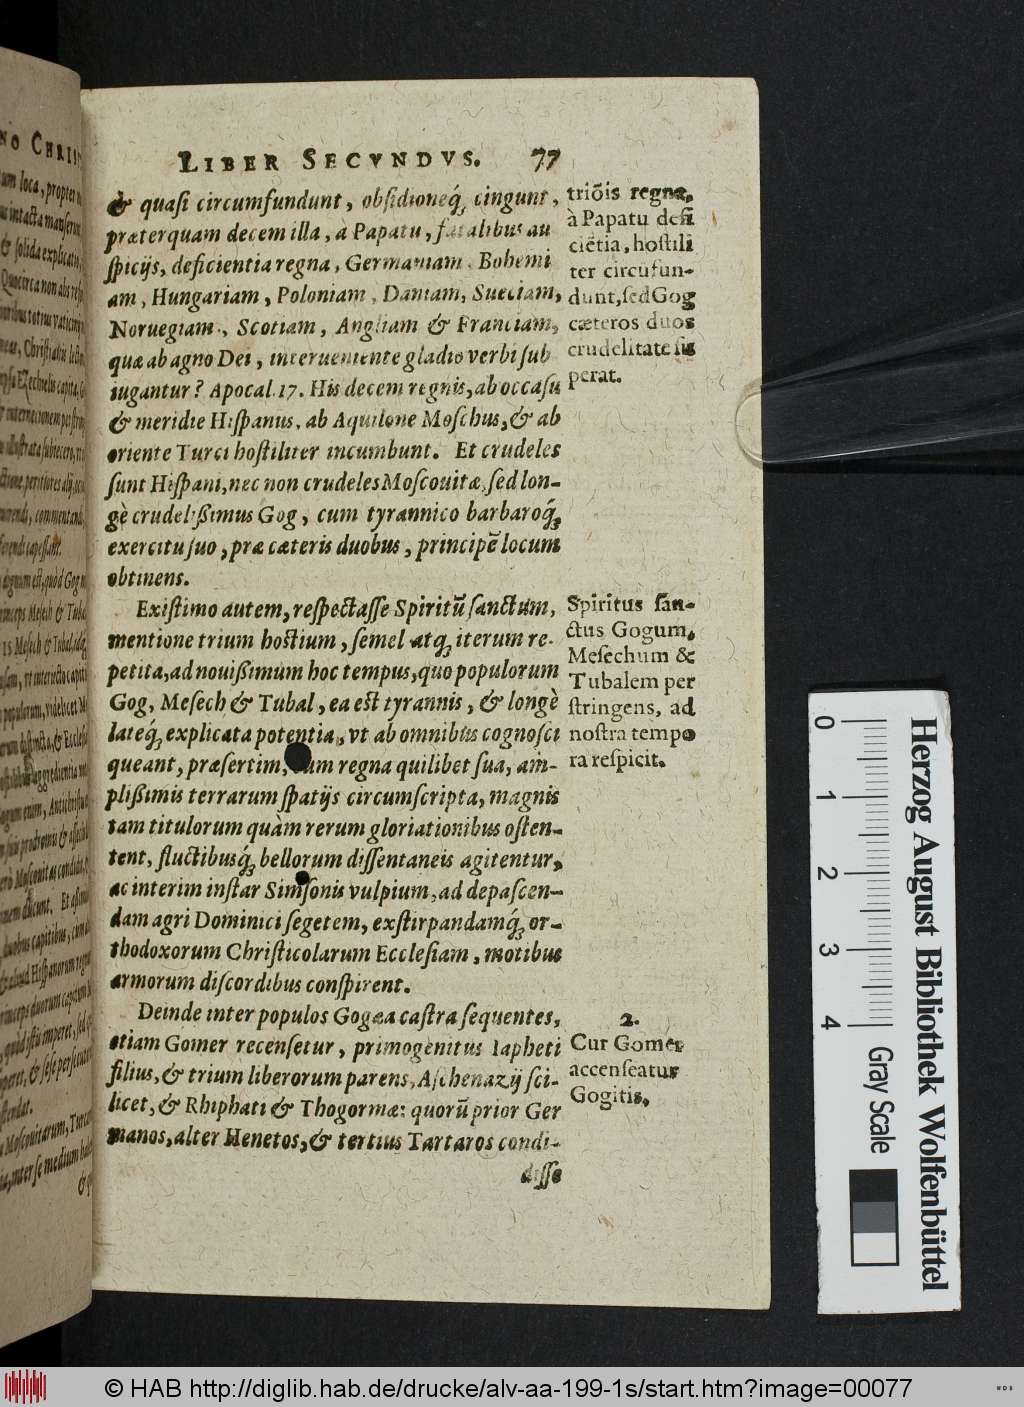 LIBER SECVNDVS. 77
& quasi circumfundunt, obsidioneq́; cingunt,
præterquam decem illa, a Papatu, fatalibus au
spicijs, deficientia regna, Germaniam, Bohemi
am, Hungariam, Poloniam, Daniam, Sueciam,
Noruegiam, Scotiam, Angliam & Franciam,
quæ ab agno Dei, interueniente gladio verbi sub
iugantur? Apocal. 17. His decem regnis, ab occasu
& meridie Hispanus, ab Aquilone Moschus, & ab
oriente Turci hostiliter incumbunt. Et crudeles
sunt Hispani, nec non crudeles Moscouitæ, sed lon-
gè crudelißimus Gog, cum tyrannico barbaroq́;
exercitu suo, præ cæteris duobus, principē locum
obtinens.
Existimo autem, respectasse Spiritū sanctum,
mentione trium hostium, semel atq; iterum re-
petita, ad nouißimum hoc tempus, quo populorum
Gog, Mesech & Tubal, ea est tyrannis, & longè
lateq́; explicata potentia, vt ab omnibus cognosci
queant, præsertim, cum regna quilibet sua, am-
plißimis terrarum spatijs circumscripta, magnis
tam titulorum quàm rerum gloriationibus osten-
tent, fluctibusq́; bellorum dissentaneis agitentur,
ac interim instar Simsonis vulpium, ad depascen-
dam agri Dominici segetem, exstirpandamq́; or-
thodoxorum Christicolarum Ecclesiam, motibus
armorum discordibus conspirent.
Deinde inter populos Gogæa castra sequentes,
etiam Gomer recensetur, primogenitus Iapheti
filius, & trium liberorum parens, Aschenazij sci-
licet, & Rhiphati & Thogormæ: quorū prior Ger
manos, alter Henetos, & tertius Tartaros condi-
disse
triōis regna,
à Papatu defi
ciētia, hostili
ter circufun-
dunt, sed Gog
cæteros duos
crudelitate su
perat.
Spiritus san-
ctus Gogum,
Mesechum &
Tubalem per
stringens, ad
nostra tempo
ra respicit.
2.
Cur Gomer
accenseatur
Gogitis.
0 1 2 3 4
Gray Scale
Herzog August Bibliothek Wolfenbüttel
© HAB http://diglib.hab.de/drucke/alv-aa-199-1s/start.htm?image=00077